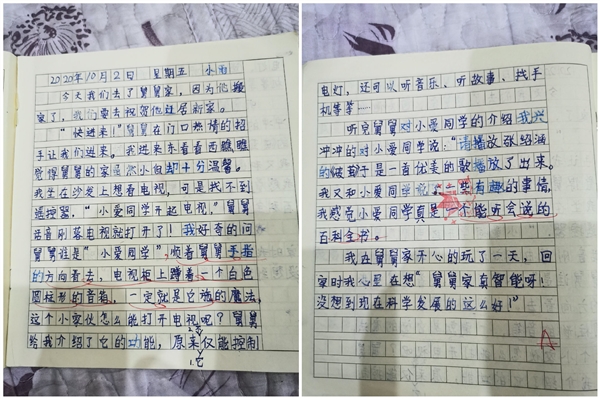 2020年10月2日 星期五 小雨
今天我们去了舅舅家，因为他搬
家了，我们要去祝贺他迁居新家。
“快进来！”舅舅在门口热情的招
手让我们进来。我进来东看看西瞧瞧
觉得舅舅的家虽然小但却十分温馨。
我坐在沙发上想看电视，可是找不到
遥控器，“小爱同学开起电视，”舅舅
话音刚落电视就打开了！我好奇的问
舅舅谁是“小爱同学”，顺着舅舅手指
的方向看去，电视柜上蹲着一个白色
圆柱形的音箱，一定就是它施的魔法，
这个小家伙怎么能打开电视呢？舅舅
给我介绍了它的功能，原来仅能控制
1.它
电灯，还可以听音乐、听故事、找手
机等等……
听完舅舅对小爱同学的介绍我兴
冲冲的对小爱同学说：“请播放张韶涵
的《破茧》于是一首优美的歌播放了出来。
我又和小爱同学说了一些有趣的事情，
我感觉小爱同学真是一个能听会说的
百科全书。
我在舅舅家开心的玩了一天，回
家时我心里在想“舅舅家真智能呀！
没想到现在科学发展的这么好！”
A